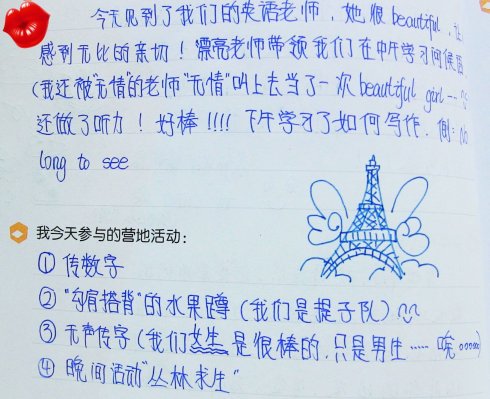 今天见到了我们的英语老师，她很beautiful，让
感到无比的亲切！漂亮老师带领我们在中午学习问候语
（我还被"无情"的老师"无情"叫上去当了一次beautiful girl--
还做了听力！好棒！！！！下午学习了如何写作，例：No
long to see
我今天参与的营地活动：
① 传数字
② "勾肩搭背"的水果蹲（我们是提子队）
③ 无声传字（我们女生是很棒的，只是男生……唉。。。。。）
④ 晚间活动"丛林求生"